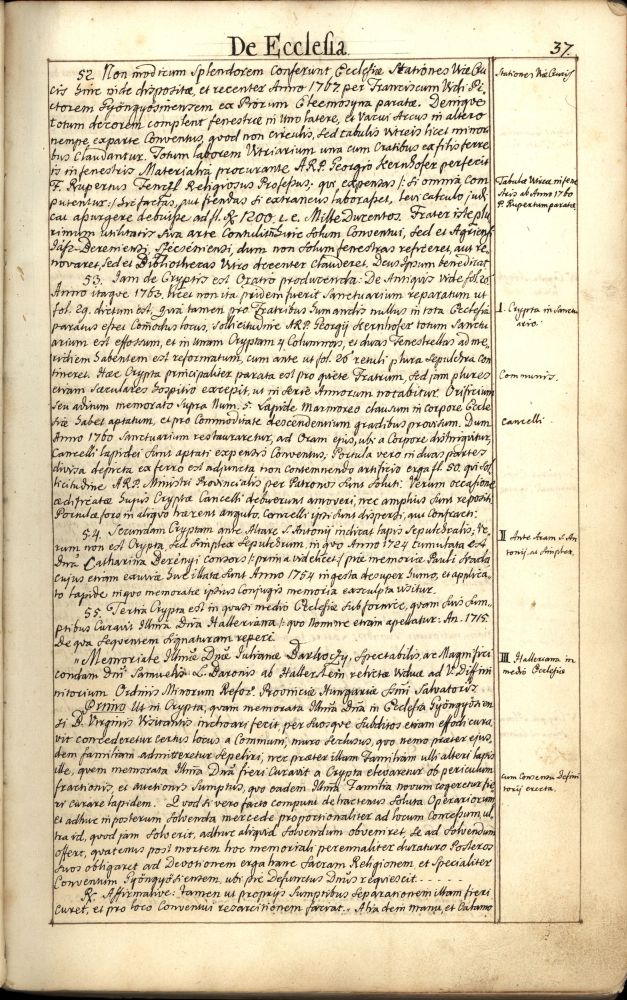 De Ecclesia
37.
52. Non modicum Splendorem Conferunt Ecclesiæ Stationes Viæ Cru
Stationes Viæ Crucis
cis hinc inde dispositæ, et recenter Anno 1767 per Franciscum Pi-
ctorem Gyöngyösinensem ex Piorum Eleemosyna paratæ. Denique
totum decorem complent fenestræ in Uno latere, et Vacui Arcus in altero
nempe ex parte Conventus, quod non circulis, sed tabulis vitreis licet minori
bus Claudantur. Totum laborem Vitriarium una cum Cratibus ex filis ferre
is in fenestris Materialia procurante A.R.P. Georgio Kernhofer perfecit
F. Rupertus Religiosus Professus: qui expensas /: Si omnia Com
Tabulæ Vitreæ in fene
stris ab Anno 1760
P. Rupertum paratæ
putentur :/ hic factas, aut fiendas Si extraneus laborasset, levi calculo judi
cat assurgere debuisse ad fl. R. 1200. i. e. Mille Ducentos. Frater iste plu
rimum utilitatis Sua arte Contulit huic Solum Conventui, Sed et Agriensi
Jász-Bereniensi, Szécseniensi, dum non Solum fenestras reficeret, aut re
novaret, Sed et Bibliothecas Vitro decenter Clauderet. Deus Ipsum benedicat
53. Jam de Cryptis est Oratio producenda: De Antiquis vide fol. 26.
Anno itaque 1763. licet non ita pridem fuerit Sanctuarium reparatum ut
I. Crypta in Sanctu
ario.
fol. 29. dictum est, quia tamen pro Fratribus humandis nullus in tota Ecclesia
paratus esset Commodus locus, Sollicitudine A.R.P. Georgii Kernhofer totum Sanctu
arium est effossum, et in Unam Cryptam 4 Columnis, et duas Fenestellas ad me,
ridiem habentem est reformatum, cum ante ut fol. 26 retuli plura Sepulchra Con
tineret. Hæc Crypta principaliter parata est pro quiete Fratrum, Sed jam plures
Communis.
etiam Sæculares hospitio excepit, ut in Serie Annorum notabitur. Orificium
Seu aditum memorato Supra Num. 5. Lapide Marmoreo clausum in corpore Eccle
siæ habet aptatum, et pro Commoditate descendentium gradibus provisum. Dum
Cancelli
Anno 1760 Sanctuarium restauraretur, ad Oram ejus, ubi a Corpore distinguitur,
Cancelli lapidei Sunt aptati expensis Conventus; Portula vero in duas partes
divisa depicta ex ferro est adjuncta non contemnendo artificio erga fl. 50. qui Sol
licitudine A.R.P. Ministri Provincialis per Patronos Sunt Soluti. Verum occasione
ædificatæ hujus Cryptæ Cancelli debuerunt amoveri, nec amplius Sunt repositi
Portula foro in aliquo hæret angulo, Cancelli ipsi Sunt dispersi, aut Confracti:
54. Secundam Cryptam ante Altare S. Antonii indicat lapis Sepulchralis; Ve
II Ante Aram S. An
tonii, ac Simplex
rum non est Crypta, Sed Simplex Sepulchrum, in quo Anno 1724 tumulata est
Dna Catharina Berényi consors /: prima videlicet :/ piæ memoriæ Pauli Almásy
cujus etiam exuviæ huc illatæ Sunt Anno 1754 ingesta desuper humo, et applica,
to lapide in quo memoratæ ipsius Conjugis memoria exsculpta visitur.
55. Tertia Crypta est in quasi medio Ecclesiæ Sub fornice, quam Suis Sum,
ptibus Curavit Illma Dna Halleriana /: quo Nomine etiam apellatur: An. 1715.
De qua Sequentem Signaturam reperi.
„Memoriale Illmæ Dnæ Julianæ Barkoczy, Spectabilis, ac Magnifici
III Halleriana in
medio Ecclesiæ
condam Dni Samuelis L. Baronis ab Hallerstein relictæ Viduæ ad V. Diffini
nitorium Ordinis Minorum Refor: Provinciæ Hungariæ Smi Salvatoris
Primo Ut in Crypta, quam memorata Illma Dna in Ecclesia Gyöngyösien
si B. Virginis Visitantis inchoari fecit, per Suosque Subditos etiam effodi cura
vit concederetur certus locus a Communi, muro Seclusus, quo nemo præter ejus,
dem familiam admitteretur Sepeliri, nec præter illam Familiam ulli alteri lapis
ille, quem memorata Illma Dna fieri Curavit a Crypta elevaretur ob periculum
cum Consensu Defini
torii erecta.
fractionis, et auctionis Sumptus, quo eadem Illma Familia novum cogeretur fie
ri curare lapidem. Quod Si vero facto computu de hactenus Soluta Operariorum
et adhuc in posterum Solvenda mercede proportionaliter ad locum Concessum, ul,
tra id, quod jam Solverit, adhuc aliquid Solvendum obveniret, Se ad Solvendum
offert, quatenus post mortem hoc memoriali perennaliter duraturo Posteros
Suos obligaret ad Devotionem erga hanc Sacram Religionem, et Specialiter
Conventum Gyöngyösiensem, ubi piæ Defunctus Dnus requiescit. - - - - -
R. Affirmative: tamen ut propriis Sumptibus Separationem illam fieri
Curet, et pro loco Conventui resarcitionem faciat.- Alia dein manu, et Calamo